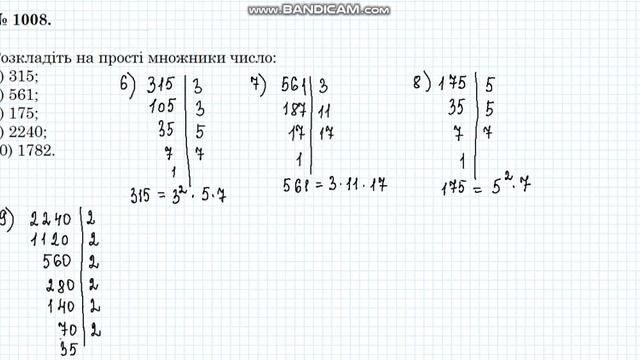 www.BANDICAM.com
№ 1008.
Розкладіть на прості множники число:
) 315;
) 561;
) 175;
) 2240;
0) 1782.
6) 315 | 3
105 | 3
35 | 5
7 | 7
1
315 = 3² · 5 · 7
7) 561 | 3
187 | 11
17 | 17
1
561 = 3 · 11 · 17
8) 175 | 5
35 | 5
7 | 7
1
175 = 5² · 7
9) 2240 | 2
1120 | 2
560 | 2
280 | 2
140 | 2
70 | 2
35